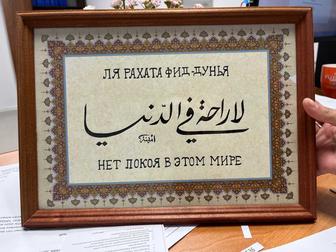 ЛЯ РАХАТА ФИД-ДУНЬЯ
لا راحة في الدنيا
НЕТ ПОКОЯ В ЭТОМ МИРЕ